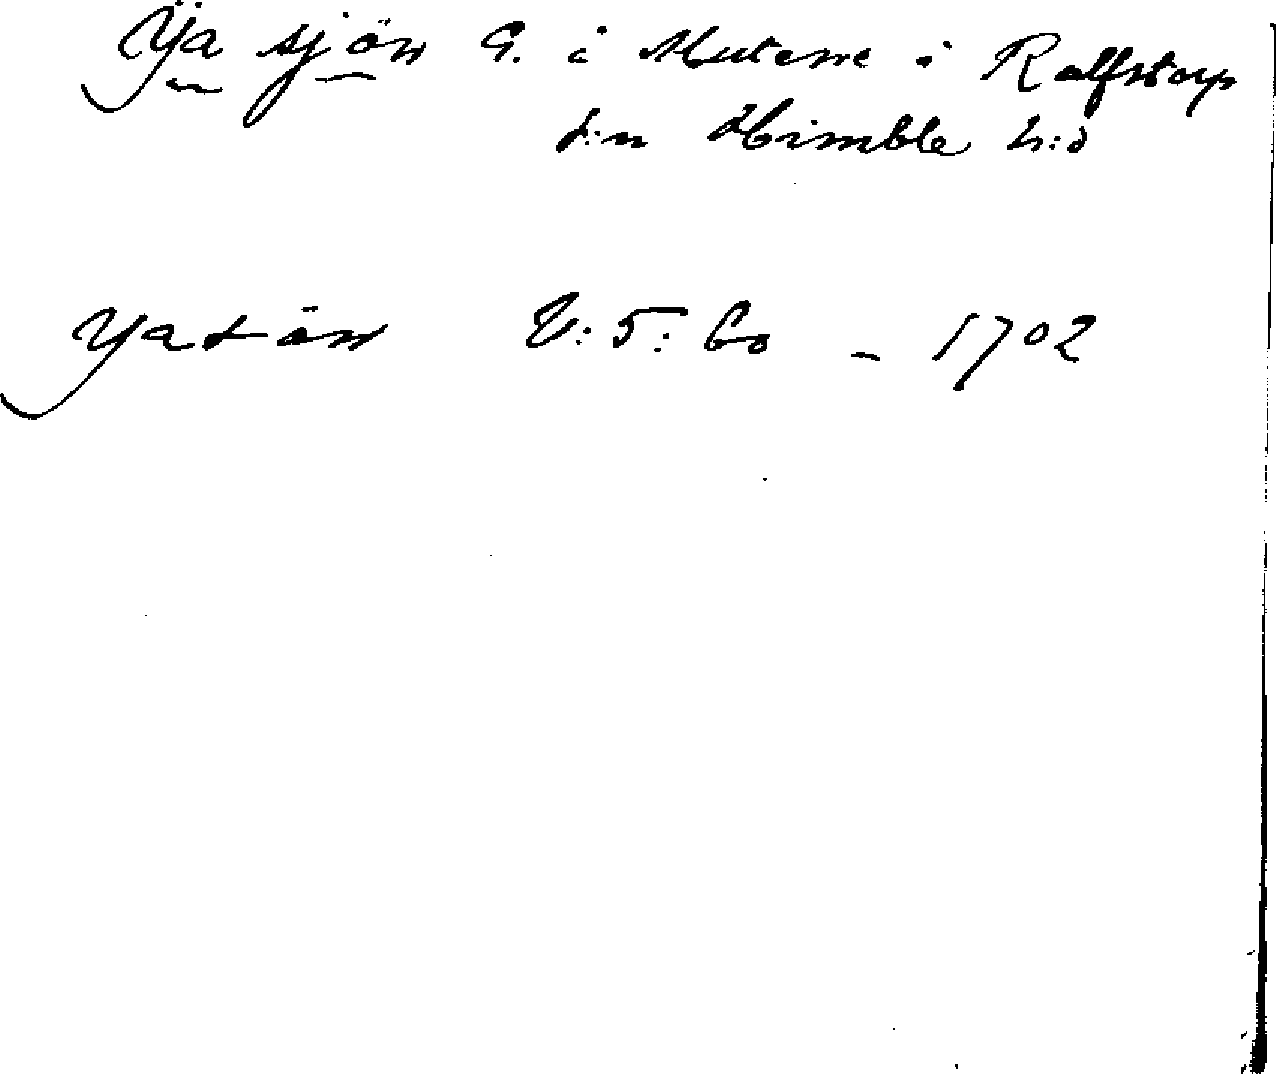 Ÿa sjön G. i Mutene i Ralfstorp
s:n Himble h:d
Yasiön V: 5: 60 – 1702